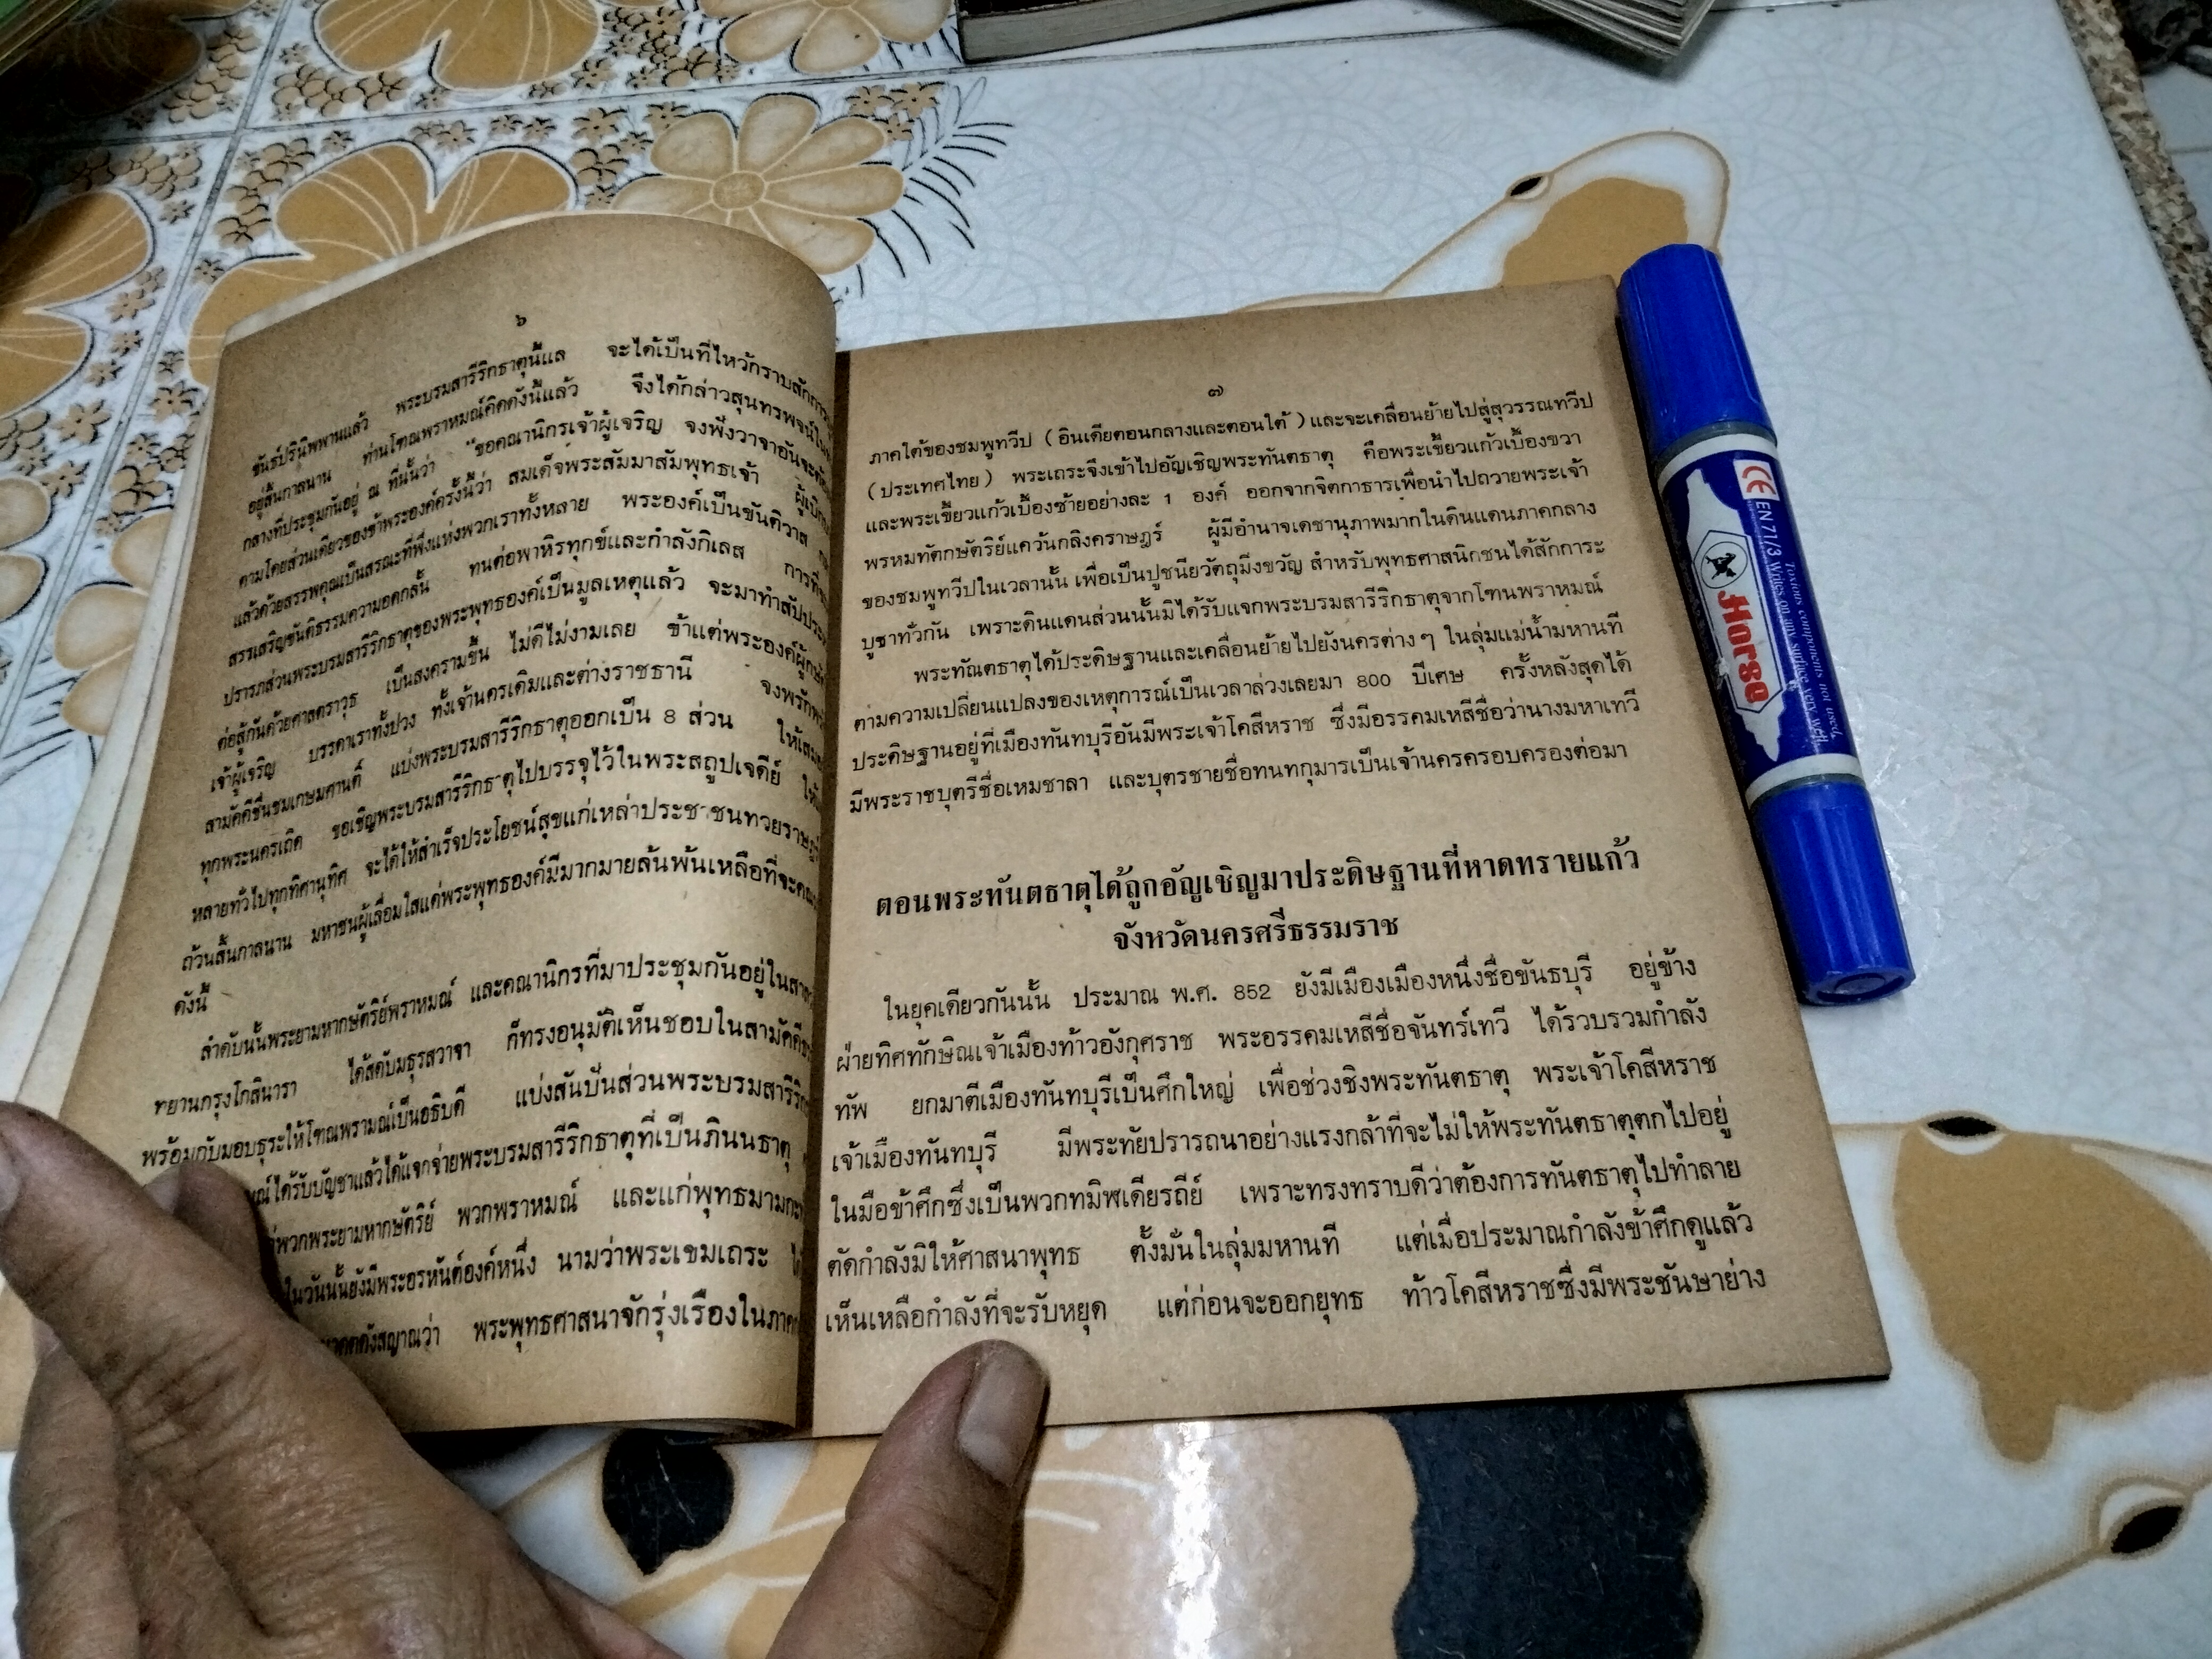 ๖
ขันธ์ปรินิพพานแล้ว พระบรมสารีริกธาตุนี้แล จะได้เป็นที่ไหว้กราบสักการ
อยู่สิ้นกาลนาน ท่านโทณพราหมณ์คิดดังนี้แล้ว จึงได้กล่าวสุนทรพจน์ใน
กลางที่ประชุมกันอยู่ ณ ที่นั้นว่า "ขอคณานิกรเจ้าผู้เจริญ จงฟังวาจาอันจะ
ตามโดยส่วนเดียวของข้าพระองค์ครั้งนี้ว่า สมเด็จพระสัมมาสัมพุทธเจ้า
แล้วด้วยสรรพคุณเป็นสรณะที่พึ่งแห่งพวกเราทั้งหลาย พระองค์เป็นขันติวาส
สรรเสริญขันติธรรมความอดกลั้น ทนต่อพาหิรทุกข์และกำลังกิเลส
ปรารภส่วนพระบรมสารีริกธาตุของพระพุทธองค์เป็นมูลเหตุแล้ว จะมาทำสัปประ
ต่อสู้กันด้วยศาสตราวุธ เป็นสงครามขึ้น ไม่ดีไม่งามเลย ข้าแต่พระองค์
เจ้าผู้เจริญ บรรดาเราทั้งปวง ทั้งเจ้านครเดิมและต่างราชธานี
สามัคคีชื่นชมเกษมศานติ์ แบ่งพระบรมสารีริกธาตุออกเป็น 8 ส่วน
ทุกพระนครเถิด ขอเชิญพระบรมสารีริกธาตุไปบรรจุไว้ในพระสถูปเจดีย์
หลายทั่วไปทุกทิศานุทิศ จะได้ให้สำเร็จประโยชน์สุขแก่เหล่าประชาชนทวยราษฎร์
ถ้วนสิ้นกาลนาน มหาชนผู้เลื่อมใสแด่พระพุทธองค์มีมากมายล้นพ้นเหลือที่จะ
ดังนี้
ลำดับนั้นพระยามหากษัตริย์พราหมณ์ และคณานิกรที่มาประชุมกันอยู่ใน
ทยานกรุงโกสินารา ได้สดับมธุรสวาจา ก็ทรงอนุมัติเห็นชอบในสามัคคี
พร้อมกับมอบธุระให้โทณพรามณ์เป็นอธิบดี แบ่งสันปันส่วนพระบรมสารีริก
ได้รับบัญชาแล้วได้แจกจ่ายพระบรมสารีริกธาตุที่เป็นภินนธาตุ
พวกพระยามหากษัตริย์ พวกพราหมณ์ และแก่พุทธมามกะ
ในวันนั้นยังมีพระอรหันต์องค์หนึ่ง นามว่าพระเขมเถระ
พระพุทธศาสนาจักรุ่งเรืองในภาค
๗
ภาคใต้ของชมพูทวีป (อินเดียตอนกลางและตอนใต้) และจะเคลื่อนย้ายไปสู่สุวรรณทวีป
(ประเทศไทย) พระเถระจึงเข้าไปอัญเชิญพระทันตธาตุ คือพระเขี้ยวแก้วเบื้องขวา
และพระเขี้ยวแก้วเบื้องซ้ายอย่างละ 1 องค์ ออกจากจิตกาธารเพื่อนำไปถวายพระเจ้า
พรหมทัตกษัตริย์แคว้นกลิงคราษฎร์ ผู้มีอำนาจเดชานุภาพมากในดินแดนภาคกลาง
ของชมพูทวีปในเวลานั้น เพื่อเป็นปูชนียวัตถุมิ่งขวัญ สำหรับพุทธศาสนิกชนได้สักการะ
บูชาทั่วกัน เพราะดินแดนส่วนนั้นมิได้รับแจกพระบรมสารีริกธาตุจากโทนพราหมณ์
พระทัณตธาตุได้ประดิษฐานและเคลื่อนย้ายไปยังนครต่างๆ ในลุ่มแม่น้ำมหานที
ตามความเปลี่ยนแปลงของเหตุการณ์เป็นเวลาล่วงเลยมา 800 ปีเศษ ครั้งหลังสุดได้
ประดิษฐานอยู่ที่เมืองทันทบุรีอันมีพระเจ้าโคสีหราช ซึ่งมีอรรคมเหสีชื่อว่านางมหาเทวี
มีพระราชบุตรีชื่อเหมชาลา และบุตรชายชื่อทนทกุมารเป็นเจ้านครครอบครองต่อมา
ตอนพระทันตธาตุได้ถูกอัญเชิญมาประดิษฐานที่หาดทรายแก้ว
จังหวัดนครศรีธรรมราช
ในยุคเดียวกันนั้น ประมาณ พ.ศ. 852 ยังมีเมืองเมืองหนึ่งชื่อขันธบุรี อยู่ข้าง
ฝ่ายทิศทักษิณเจ้าเมืองท้าวอังกุศราช พระอรรคมเหสีชื่อจันทร์เทวี ได้รวบรวมกำลัง
ทัพ ยกมาตีเมืองทันทบุรีเป็นศึกใหญ่ เพื่อช่วงชิงพระทันตธาตุ พระเจ้าโคสีหราช
เจ้าเมืองทันทบุรี มีพระทัยปรารถนาอย่างแรงกล้าที่จะไม่ให้พระทันตธาตุตกไปอยู่
ในมือข้าศึกซึ่งเป็นพวกทมิฬเดียรถีย์ เพราะทรงทราบดีว่าต้องการทันตธาตุไปทำลาย
ตัดกำลังมิให้ศาสนาพุทธ ตั้งมั่นในลุ่มมหานที แต่เมื่อประมาณกำลังข้าศึกดูแล้ว
เห็นเหลือกำลังที่จะรับหยุด แต่ก่อนจะออกยุทธ ท้าวโคสีหราชซึ่งมีพระชันษาย่าง
CE EN 71/3 Writes on any surface very well
Toxious components not used.
Horse